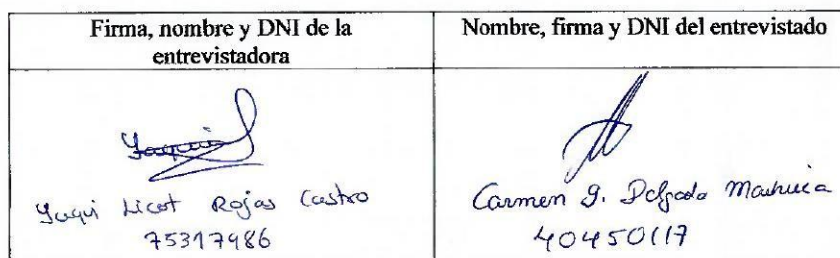 Firma, nombre y DNI de la
entrevistadora
Nombre, firma y DNI del entrevistado
Yaqui
Yaqui Licet Rojas Castro
75317986
Carmen G. Delgado
40450117